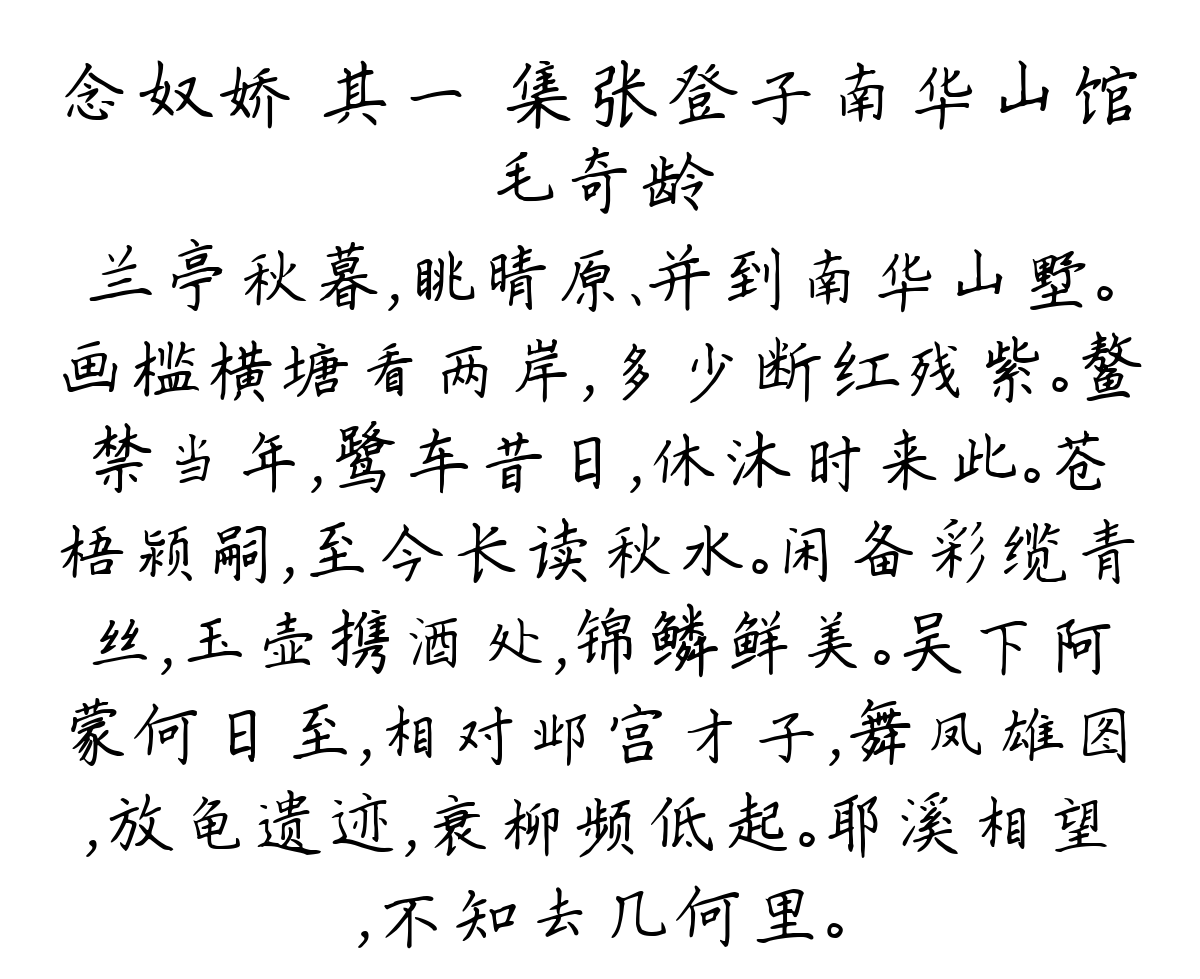 念奴娇 其一 集张登子南华山馆
毛奇龄
兰亭秋暮,眺晴原、并到南华山墅。
画槛横塘看两岸,多少断红残紫。鳌
禁当年,鹭车昔日,休沐时来此。苍
梧颍嗣,至今长读秋水。闲备彩缆青
丝,玉壶携酒处,锦鳞鲜美。吴下阿
蒙何日至,相对邺宫才子,舞凤雄图
,放龟遗迹,衰柳频低起。耶溪相望
,不知去几何里。